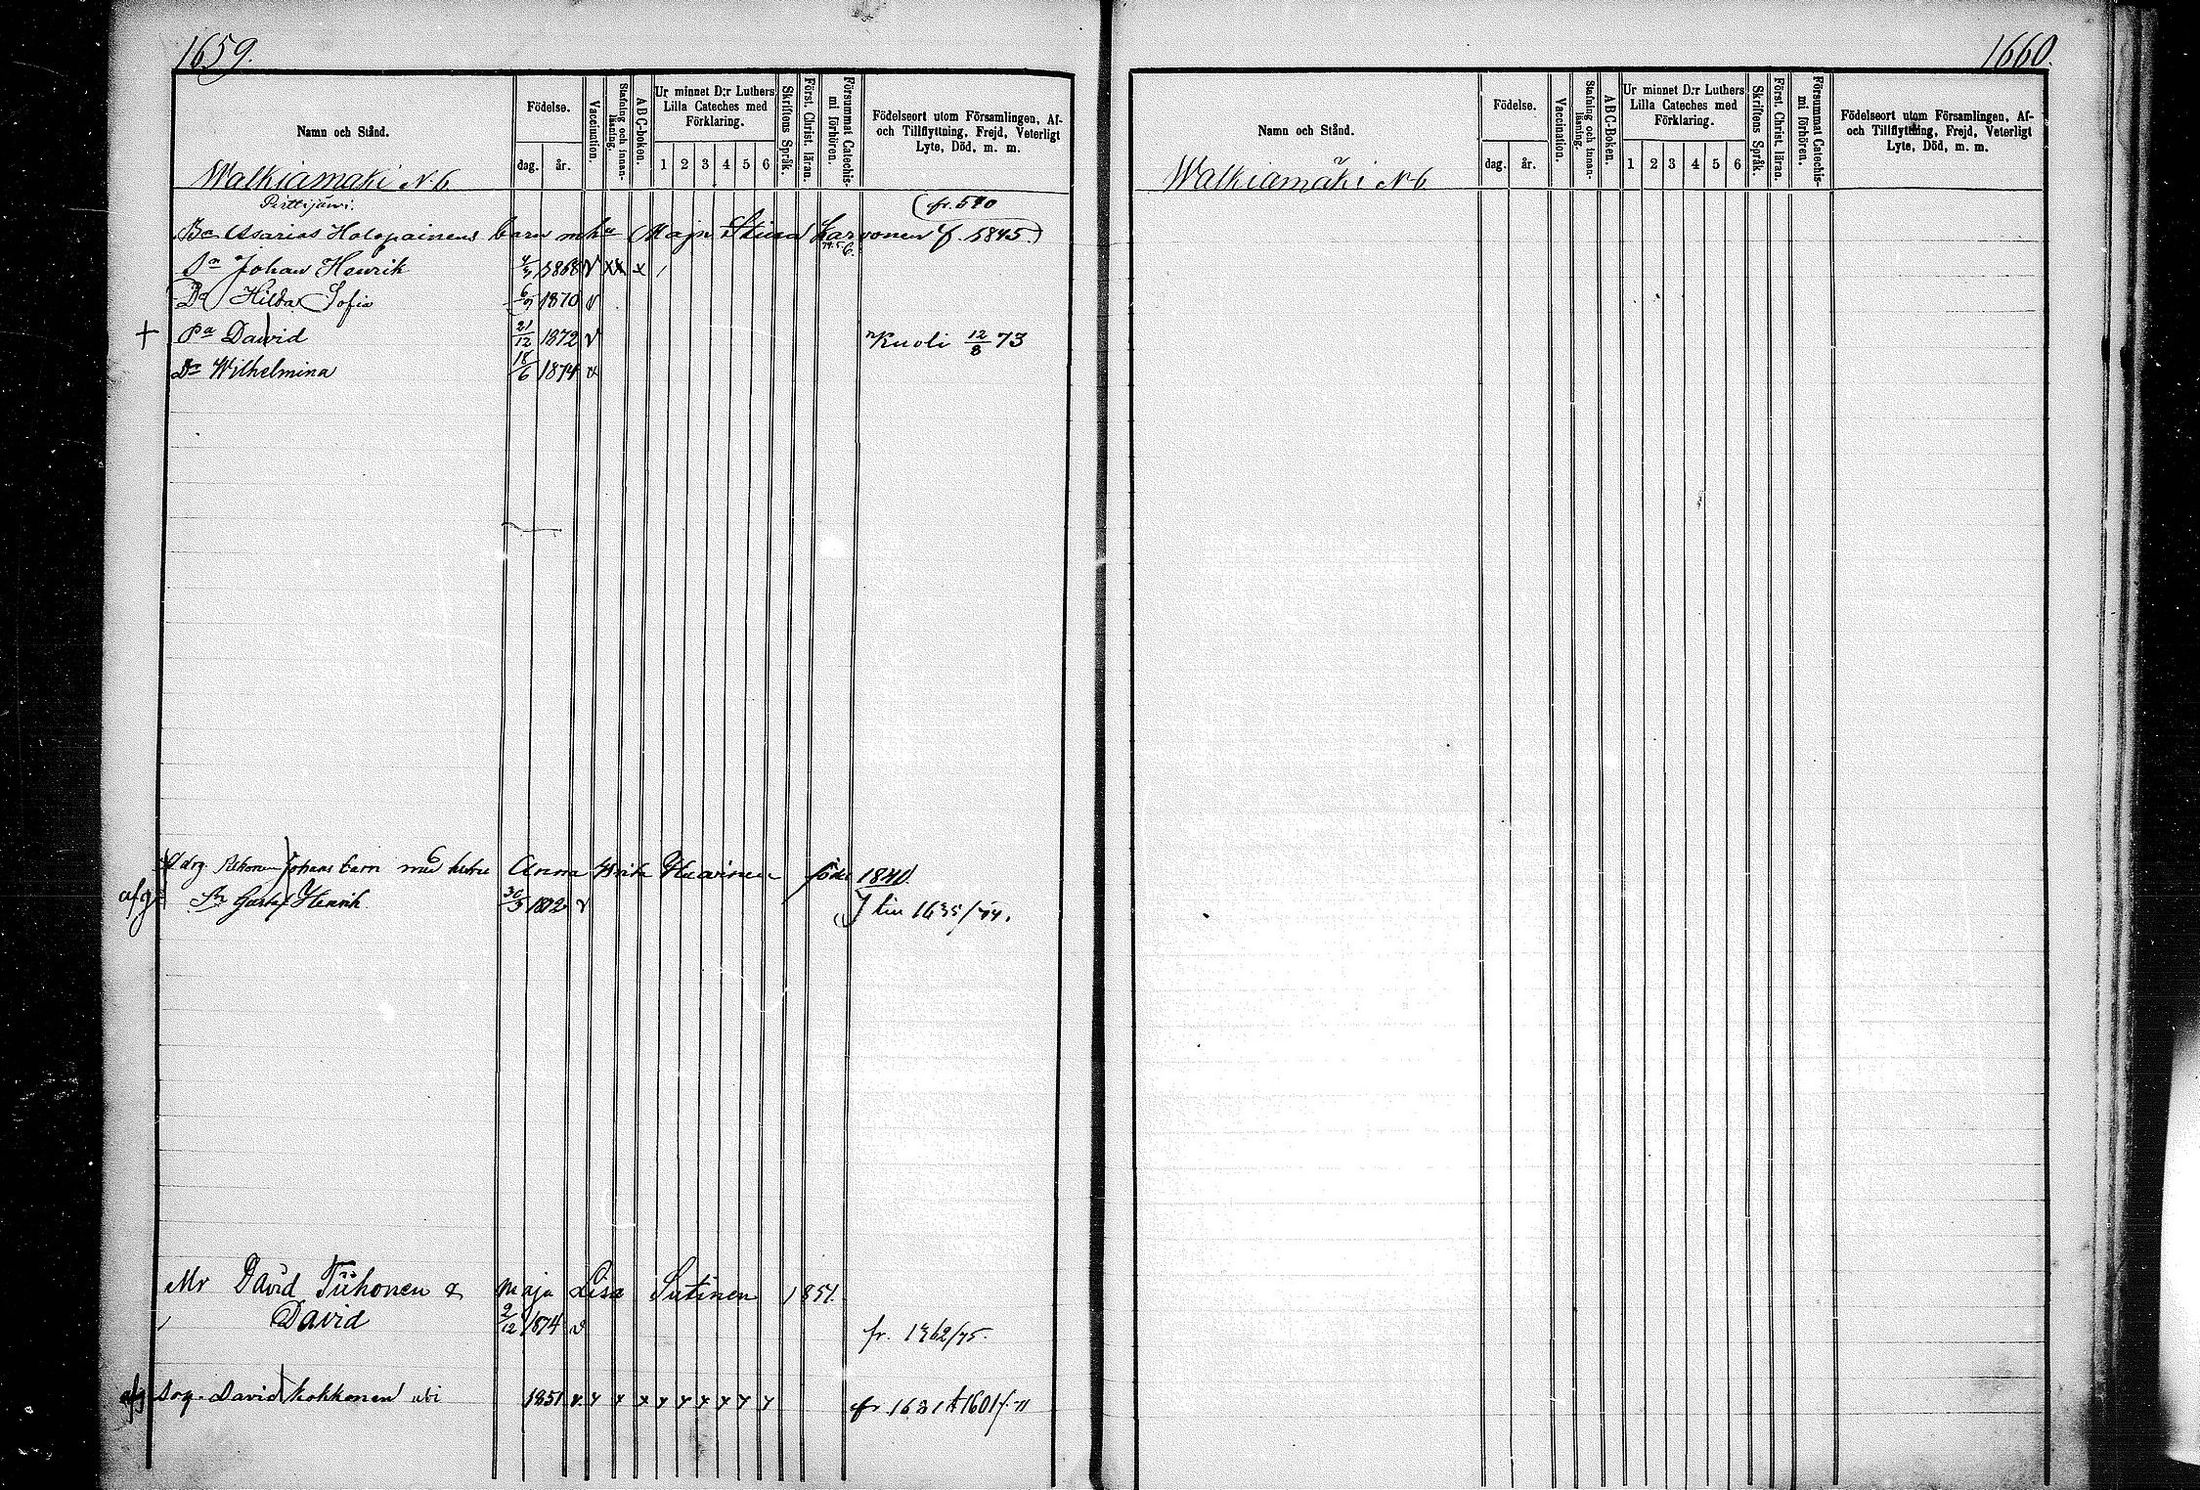 1659.
Namn och Stånd.
Födelse.
dag. år.
Vaccination.
Stafning och innan-läsning.
ABC-boken.
Ur minnet D:r Luthers Lilla Cateches med Förklaring.
1 2 3 4 5 6
Skriftens Språk.
Först. Christ. läran.
Försummat Catechis-mi förhören.
Födelseort utom Församlingen, Af- och Tillflyttning, Frejd, Veterligt Lyte, Död, m. m.
Walkiamäki N 6
Perttijärvi.
fr. 590
Bo Asarias Holopainens barn m hu Maja Stina Karvonen f. 1845.
Sn Johan Henrik 1868 v xx x /
Dr Hilda Sofia 6/9 1870 v
+ Pa David 21/12 1872 v Kuoli 12/8 73
Dr Wilhelmina 18/6 1874 v
Johans barn med hustru Anna Brita född 1840.
afg Sn Gustaf Henrik 30/3 1872 v till 1635/74.
Mr David Tiihonen & Maja Lisa Sutinen 1851.
David 2/12 1874 v fr. 1362/75.
afg Drg. David Kokkonen 1851 x x x x x x x x x x fr 1631 t 1601
1660.
Namn och Stånd.
Födelse.
dag. år.
Vaccination.
Stafning och innan-läsning.
ABC-Boken.
Ur minnet D:r Luthers Lilla Cateches med Förklaring.
1 2 3 4 5 6
Skriftens Språk.
Först. Christ. läran.
Försummat Catechis-mi förhören.
Födelseort utom Församlingen, Af- och Tillflyttning, Frejd, Veterligt Lyte, Död, m. m.
Walkiamäki N 6